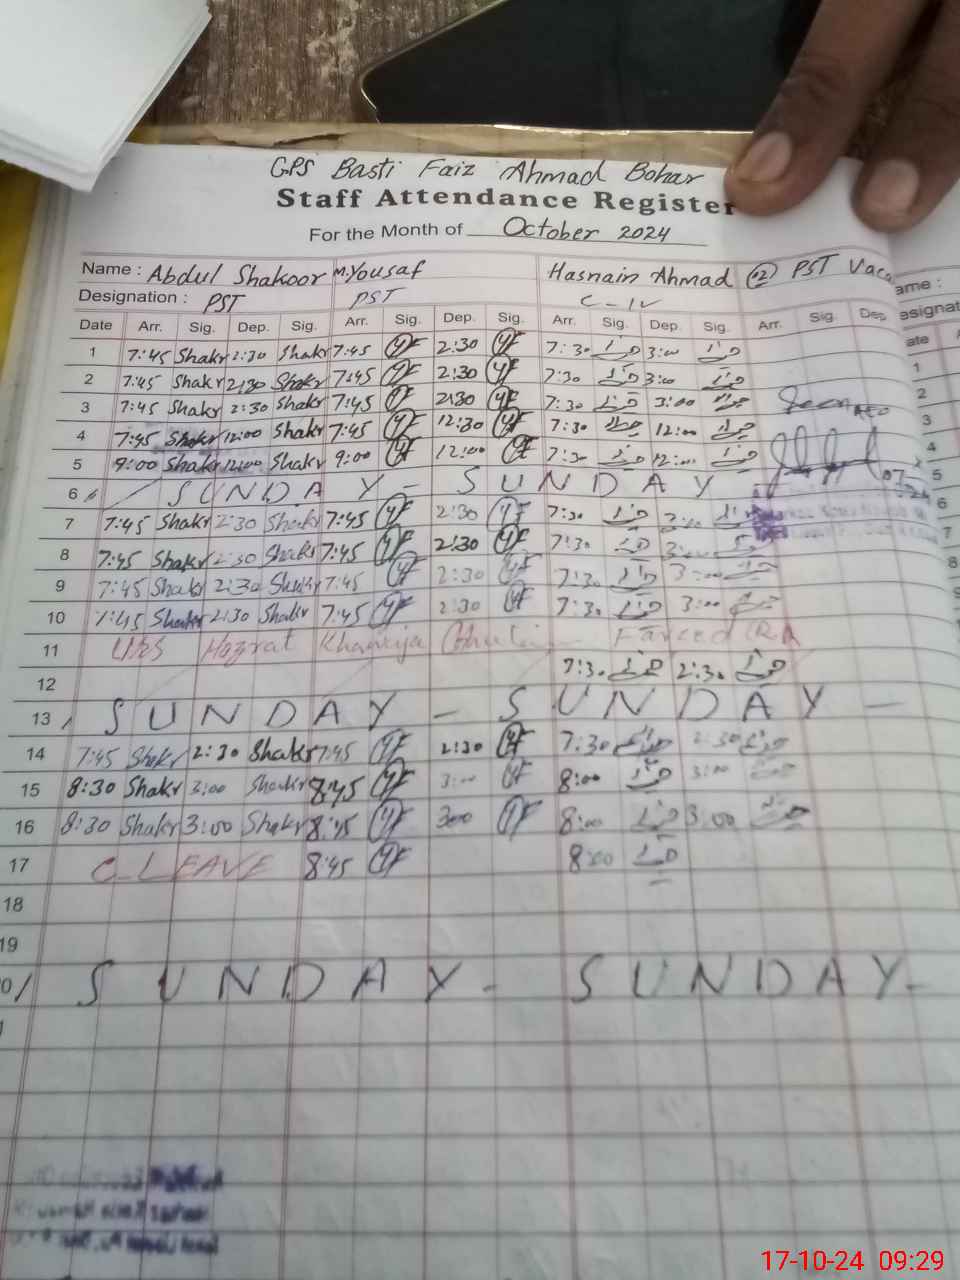 GPS Basti Faiz Ahmad Bohar
Staff Attendance Register
For the Month of October 2024
Name : Abdul Shakoor M. Yousaf Hasnain Ahmad 02 PST Vaca
Designation : PST PST C-IV
Date Arr. Sig. Dep. Sig. Arr. Sig. Dep. Sig. Arr. Sig. Dep. Sig. Arr. Sig. Dep
1 7:45 Shakr 2:30 Shakr 7:45 YF 2:30 YF 7:30 3:00
2 7:45 Shakr 2:30 Shakr 7:45 YF 2:30 YF 7:30 3:00
3 7:45 Shakr 2:30 Shakr 7:45 YF 2:30 YF 7:30 3:00
4 7:45 Shakr 12:00 Shakr 7:45 YF 12:30 YF 7:30 12:00
5 9:00 Shakr 12:00 Shakr 9:00 YF 12:00 YF 7:30 12:00
6 SUNDAY - SUNDAY
7 7:45 Shakr 2:30 Shakr 7:45 YF 2:30 YF 7:30 3:00
8 7:45 Shakr 2:30 Shakr 7:45 YF 2:30 YF 7:30 3:00
9 7:45 Shakr 2:30 Shakr 7:45 YF 2:30 YF 7:30 3:00
10 7:45 Shakr 2:30 Shakr 7:45 YF 2:30 YF 7:30 3:00
11 Urs Hazrat Khawaja Ghulam Fareed (RA
12 7:30 2:30
13 SUNDAY - SUNDAY -
14 7:45 Shakr 2:30 Shakr 7:45 YF 2:30 YF 7:30 2:30
15 8:30 Shakr 3:00 Shakr 8:45 YF 3:00 YF 8:00 3:00
16 8:30 Shakr 3:00 Shakr 8:45 YF 300 YF 8:00 3:00
17 C-LEAVE 8:45 YF 8:00
18
19
0 SUNDAY - SUNDAY -
ame :
esignat
ate
1
2
3
4
5
6
7
8
9
17-10-24 09:29